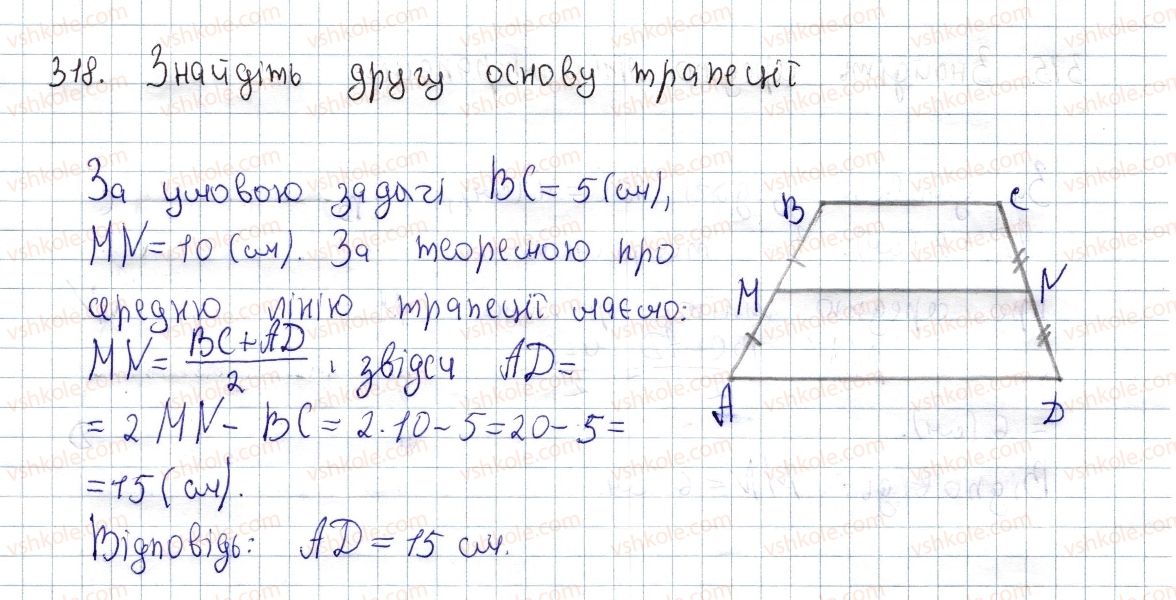 318. Знайдіть другу основу трапеції
За умовою задачі BC = 5 (см),
MN = 10 (см). За теоремою про
середню лінію трапеції маємо:
MN = (BC + AD)/2, звідси AD =
= 2 MN - BC = 2·10 - 5 = 20 - 5 =
= 15 (см).
Відповідь: AD = 15 см.
B C
M N
A D
vshkole.com